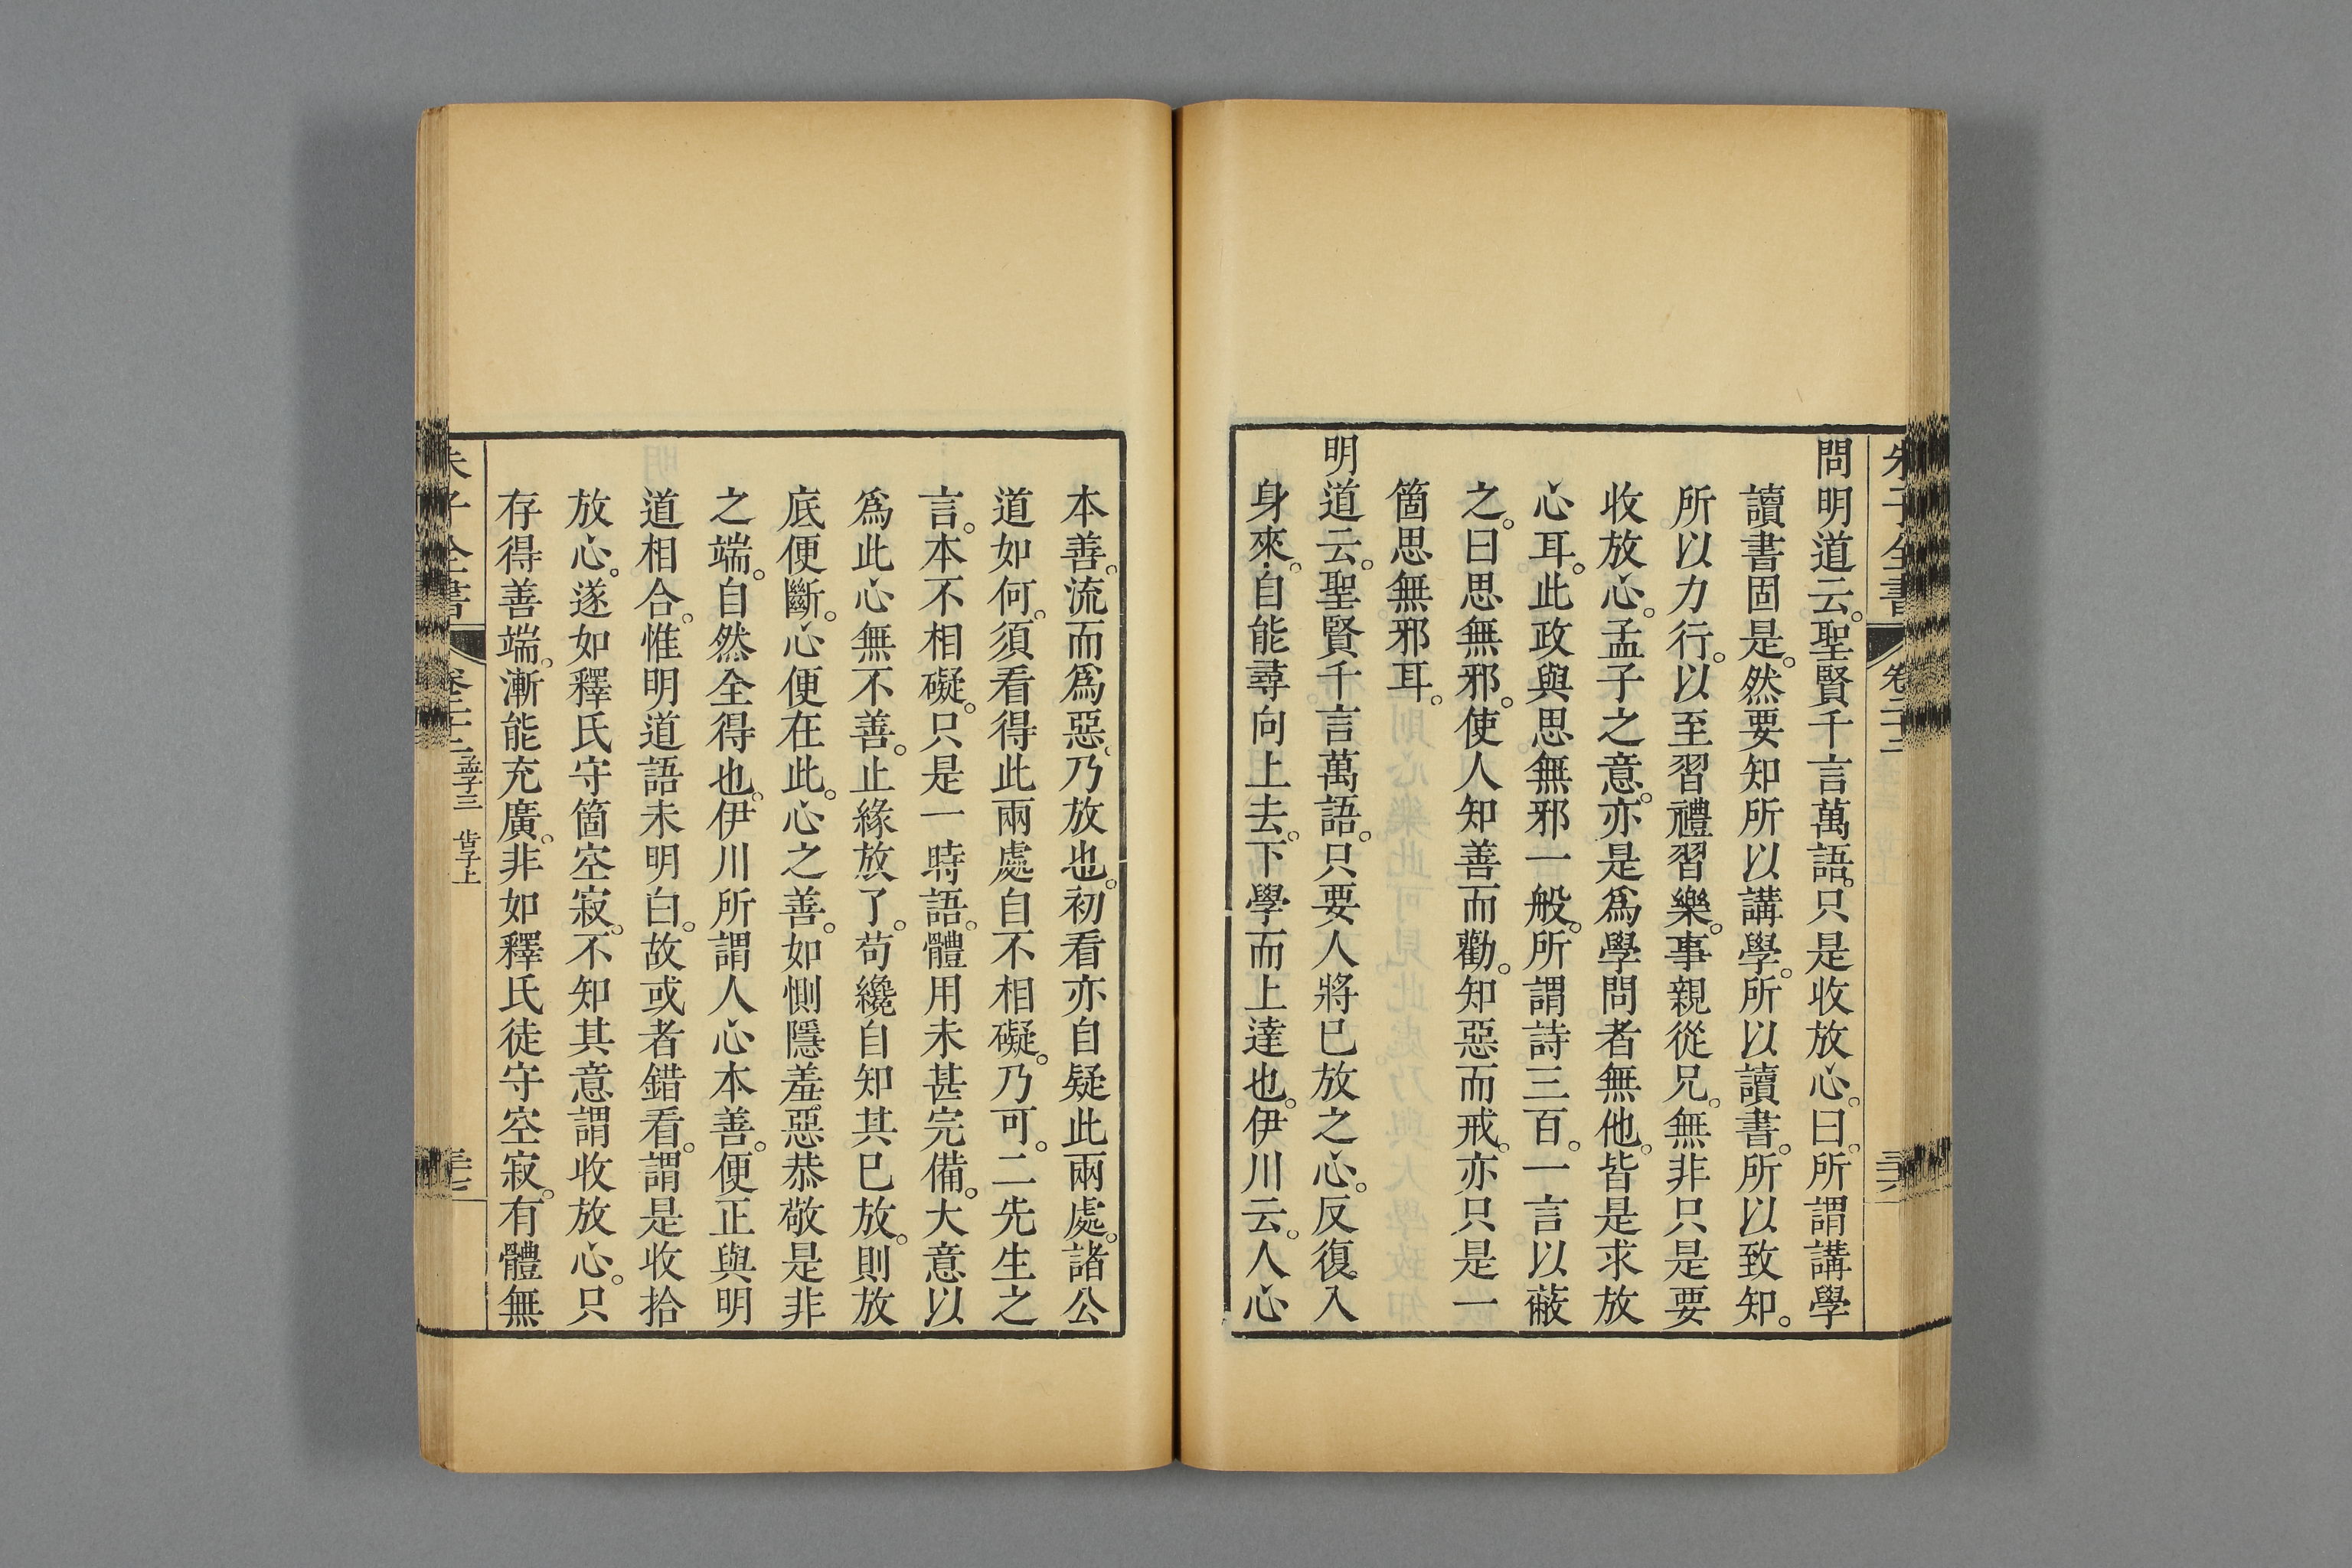 朱子全書 卷二十二
問明道云。聖賢千言萬語。只是收放心。曰。所謂講學
讀書固是。然要知所以講學。所以讀書。所以致知。
所以力行。以至習禮習樂。事親從兄。無非只是要
收放心。孟子之意。亦是爲學問者無他。皆是求放
心耳。此政與思無邪一般。所謂詩三百。一言以蔽
之。曰思無邪。使人知善而勸。知惡而戒。亦只是一
箇思無邪耳。
明道云。聖賢千言萬語。只要人將已放之心。反復入
身來。自能尋向上去。下學而上達也。伊川云。人心
本善。流而爲惡、乃放也。初看亦自疑此兩處。諸公
道如何。須看得此兩處自不相礙。乃可。二先生之
言。本不相礙。只是一時語。體用未甚完備。大意以
爲此心無不善。止緣放了。苟纔自知其已放。則放
底便斷。心便在此。心之善。如惻隱羞惡恭敬是非
之端。自然全得也。伊川所謂人心本善。便正與明
道相合。惟明道語未明白。故或者錯看。謂是收拾
放心。遂如釋氏守箇空寂。不知其意謂收放心。只
存得善端。漸能充廣。非如釋氏徒守空寂。有體無
子全書 孟子三 告子上